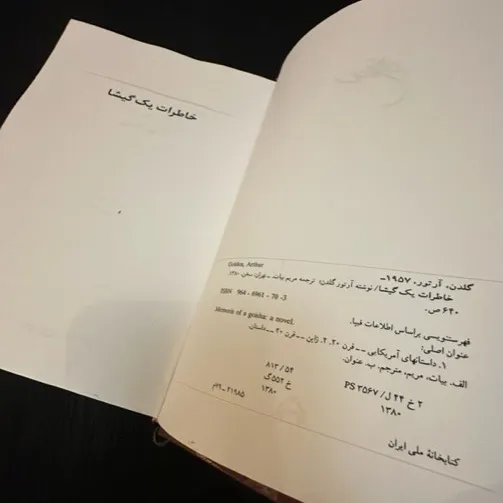 خاطرات یک گیشا
گلدن، آرتور، ۱۹۵۷ـ
Golden, Arthur
خاطرات یک گیشا/ نوشته آرتور گلدن؛ ترجمه مریم بیات. ـ تهران: سخن، ۱۳۸۰.
۶۴۰ ص.
ISBN 964 - 6961 - 70 - 3
فهرستنویسی براساس اطلاعات فیپا.
عنوان اصلی:
Memoirs of a geisha: a novel.
۱. داستانهای آمریکایی -- قرن ۲۰. ۲. ژاپن -- قرن ۲۰ -- داستان.
الف. بیات، مریم، مترجم. ب. عنوان.
۲ خ ۴۴ ل/ PS ۳۵۶۷
۸۱۳ / ۵۴
۱۳۸۰
خ ۵۵۴گ
۱۳۸۰
کتابخانهٔ ملی ایران
۲۱۹۸۵-۷۹م